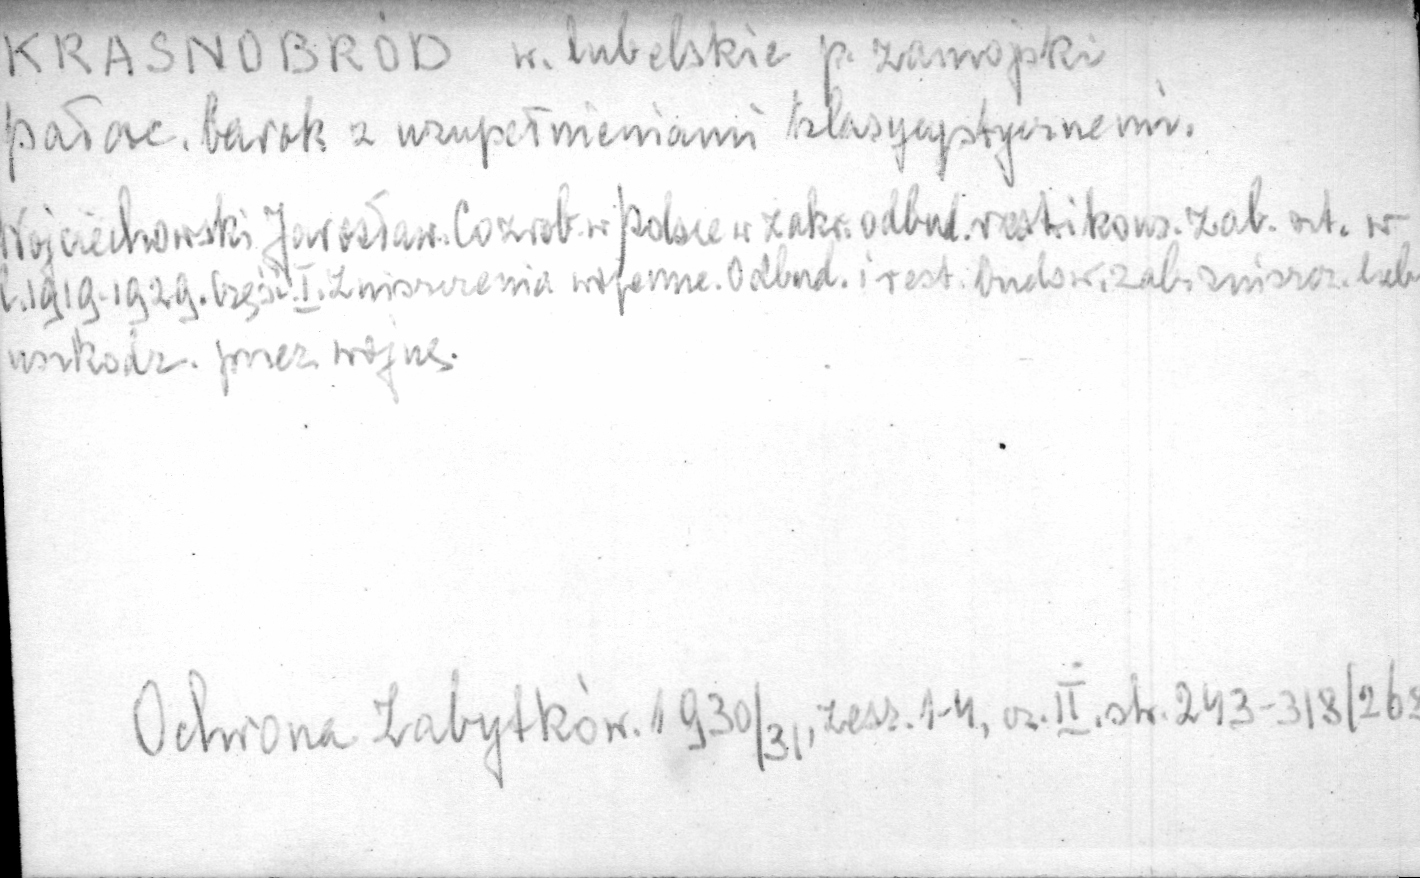 KRASNOBRÓD w. lubelskie p. zamojski
pałac. barok z uzupełnieniami klasycystycznemi.
Wojciechowski Jarosław. Co zrob. w Polsce w zakr. odbud. rest. i kons. zab. szt. w
l. 1919-1929. Część I. Zniszczenia wojenne. Odbud. i rest. budow. zab. zniszcz. lub
uszkodz. przez wojnę.
Ochrona Zabytków. 1930/31, zesz. 1-4, cz. II. str. 243-318/